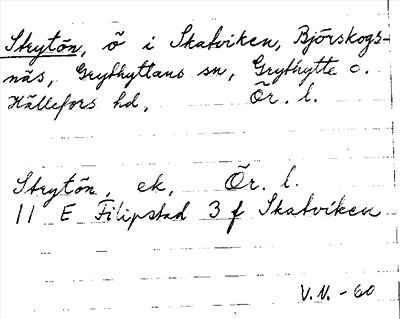 Strytön, ö i Skatviken, Björskogs-
näs, Grythyttans sn, Grythytte o.
Hällefors hd, Ör. l.
Strytön, ek, Ör. l.
11 E Filipstad 3 f Skatviken
V.N. -60